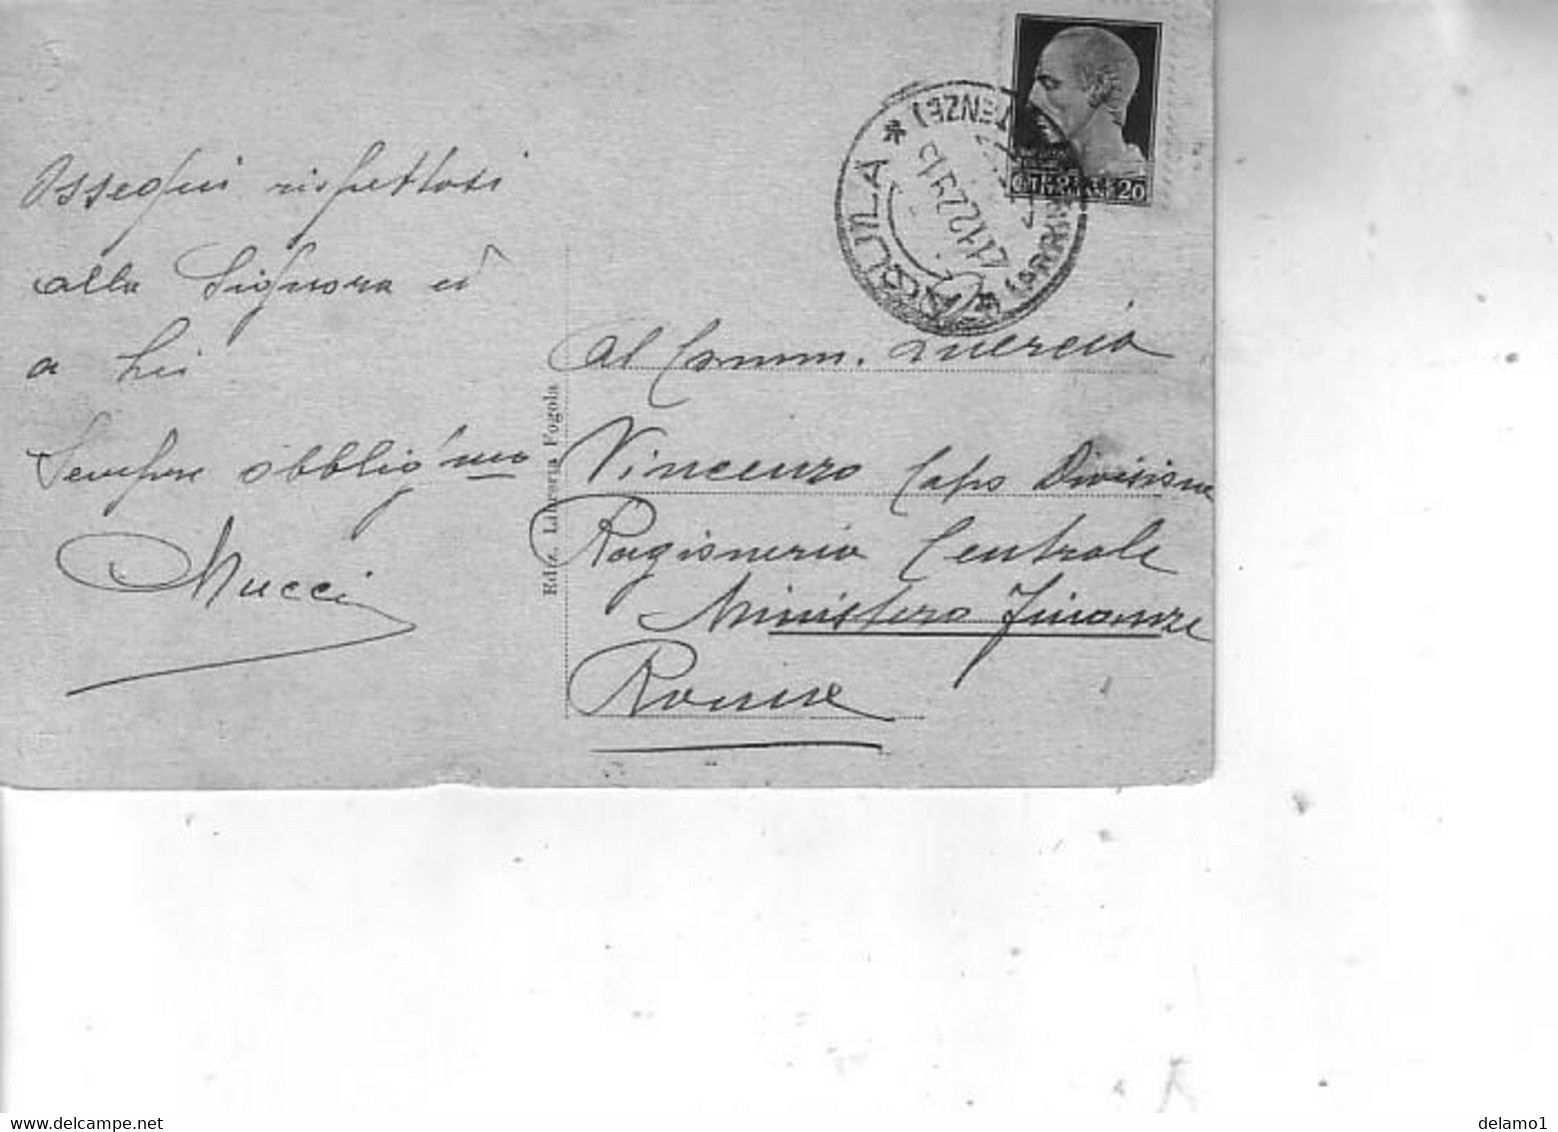 Ossequi rispettosi
alla Signora ed
a Lei
Sempre obblig'mo
Mucci
Ediz. Libreria Fogola
AQUILA
20
Al Comm. Quercia
Vincenzo Capo Divisione
Ragioneria Centrale
Ministero Finanze
Rome
www.delcampe.net
delamo1